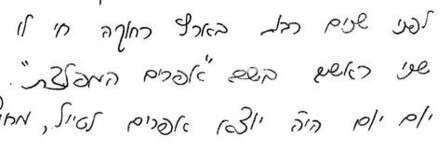 לפני שנים רבות בארץ רחוקה חי לו
שני בשם "אפרים המפלצת".
יום יום היה יוצא אפרים לטיול,